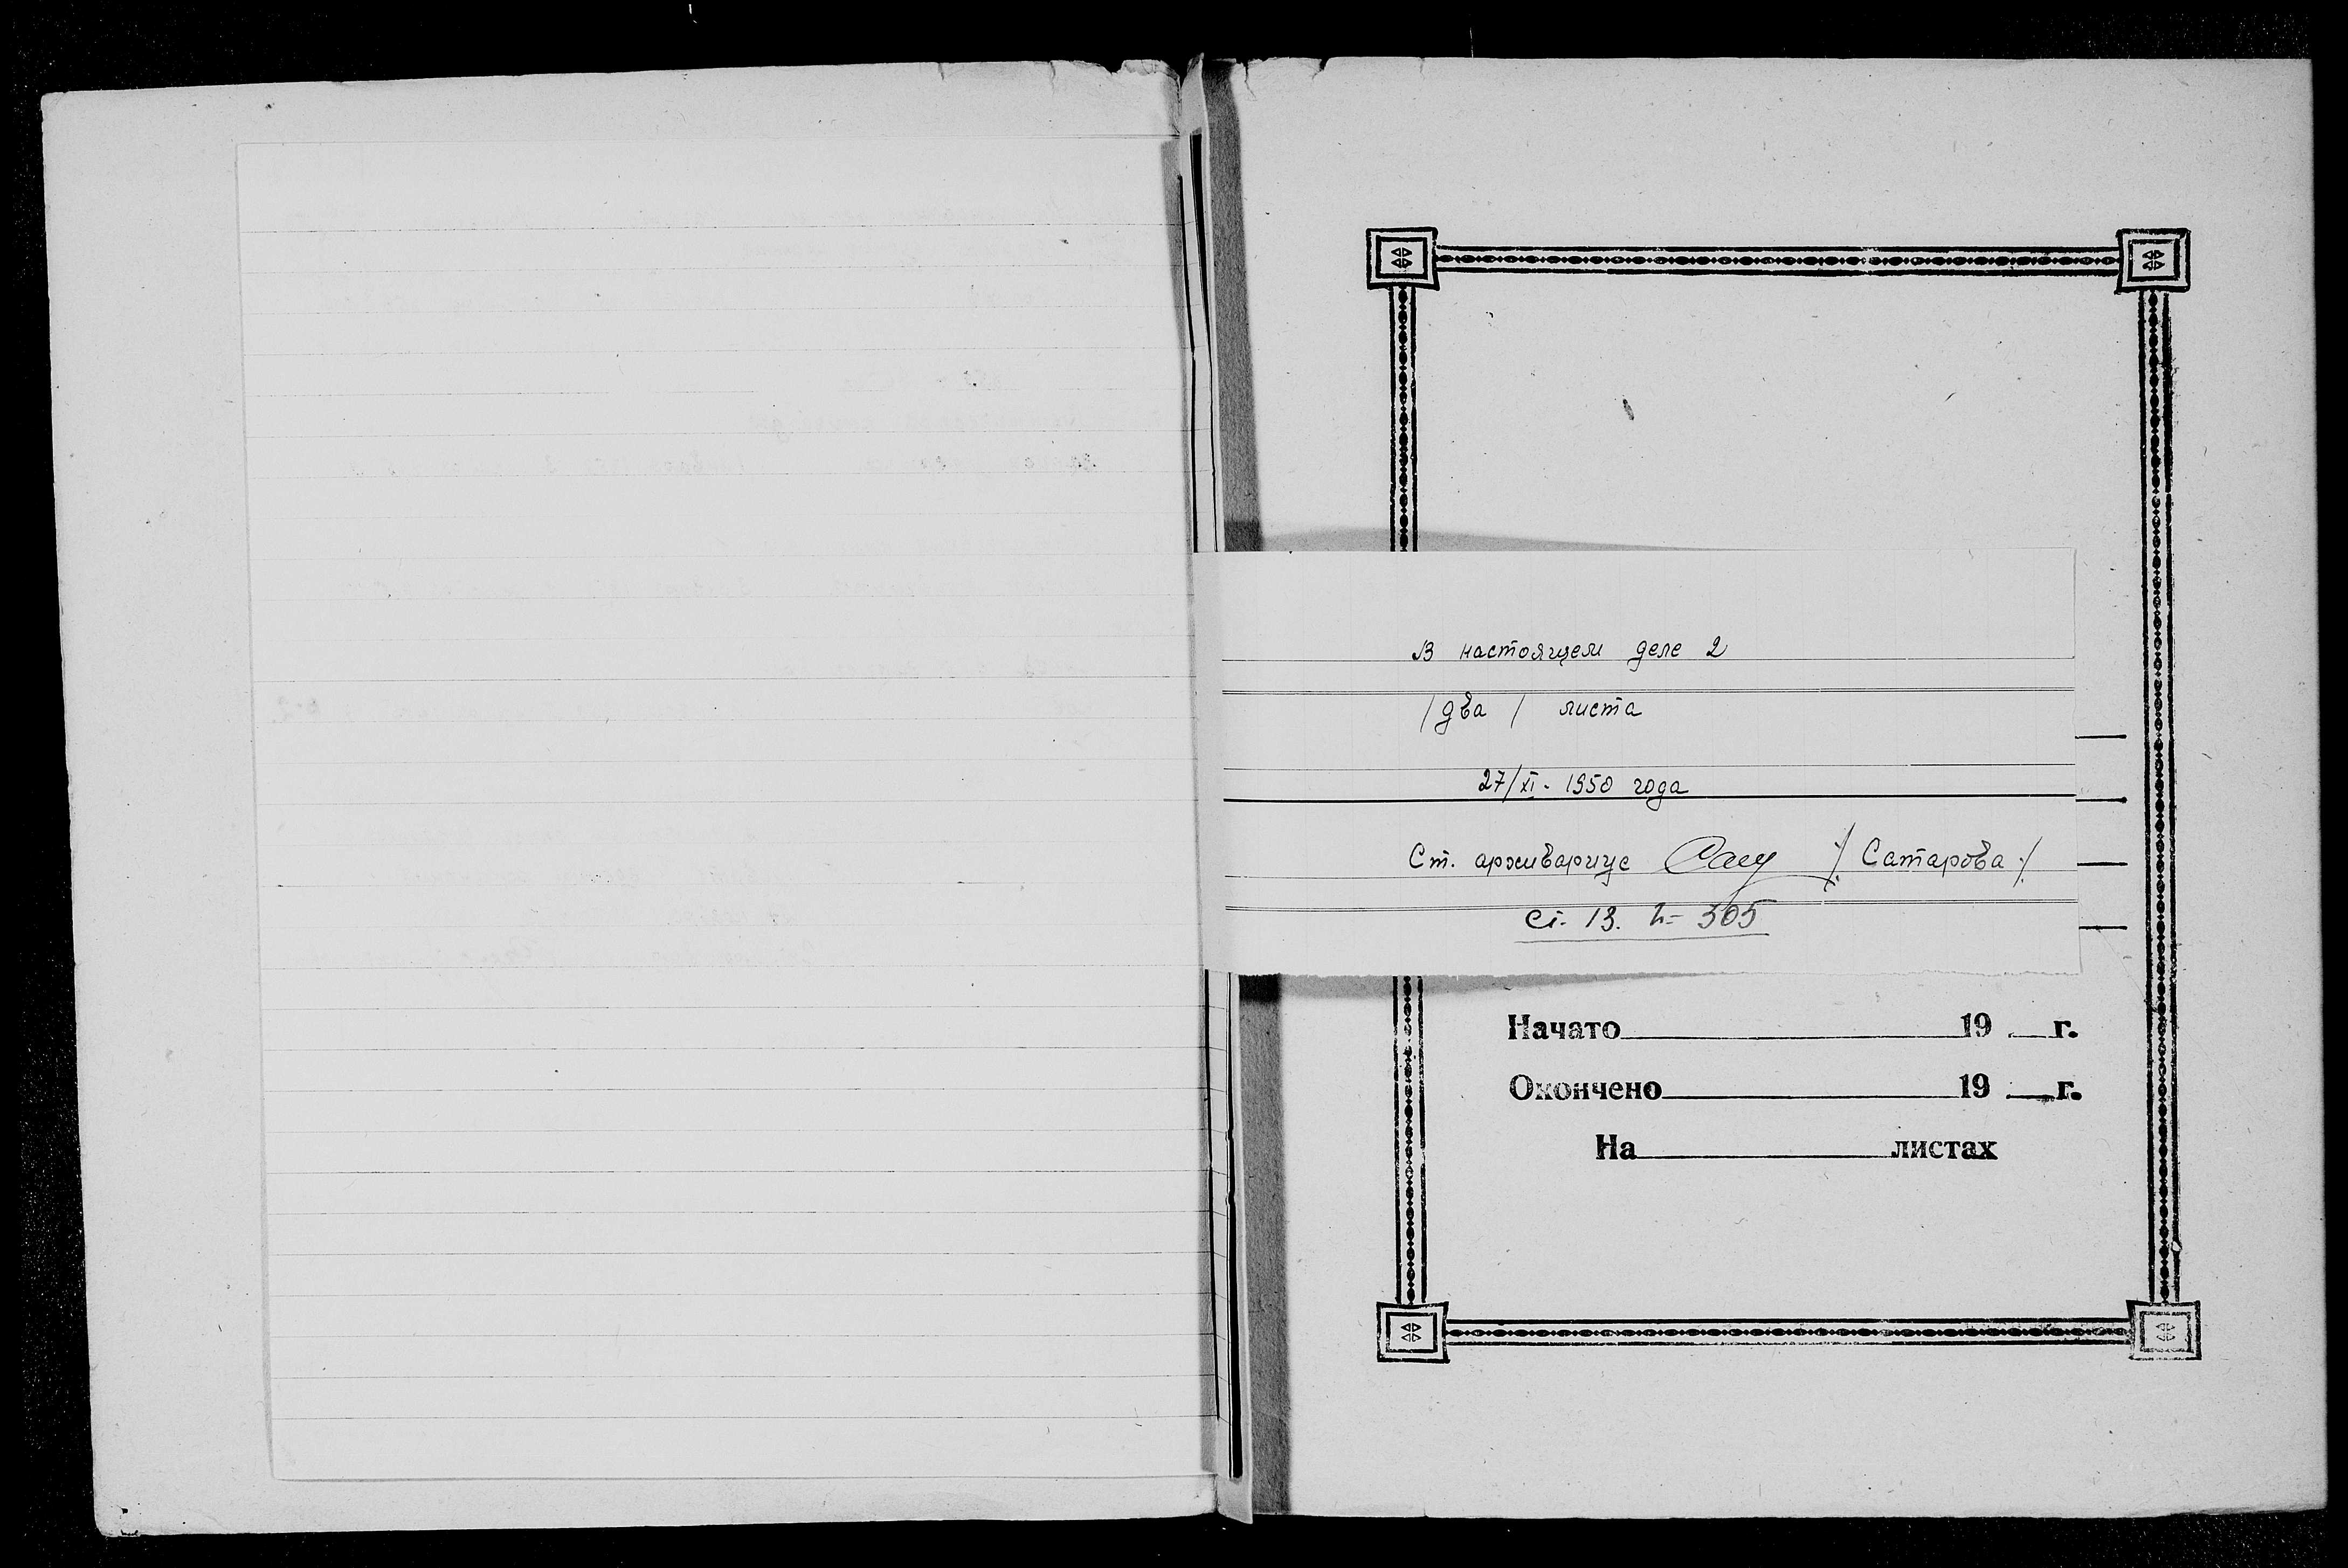 В настоящем деле 2
/два/ листа
27/XI- 1950 года
Ст. архивариус /Сатарова/
13. 505
Начато 19 г.
Окончено 19 г.
На листах